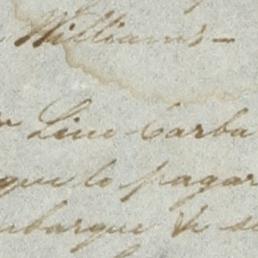 Williams -
Lino Carba
que lo pagar
mbarque de su